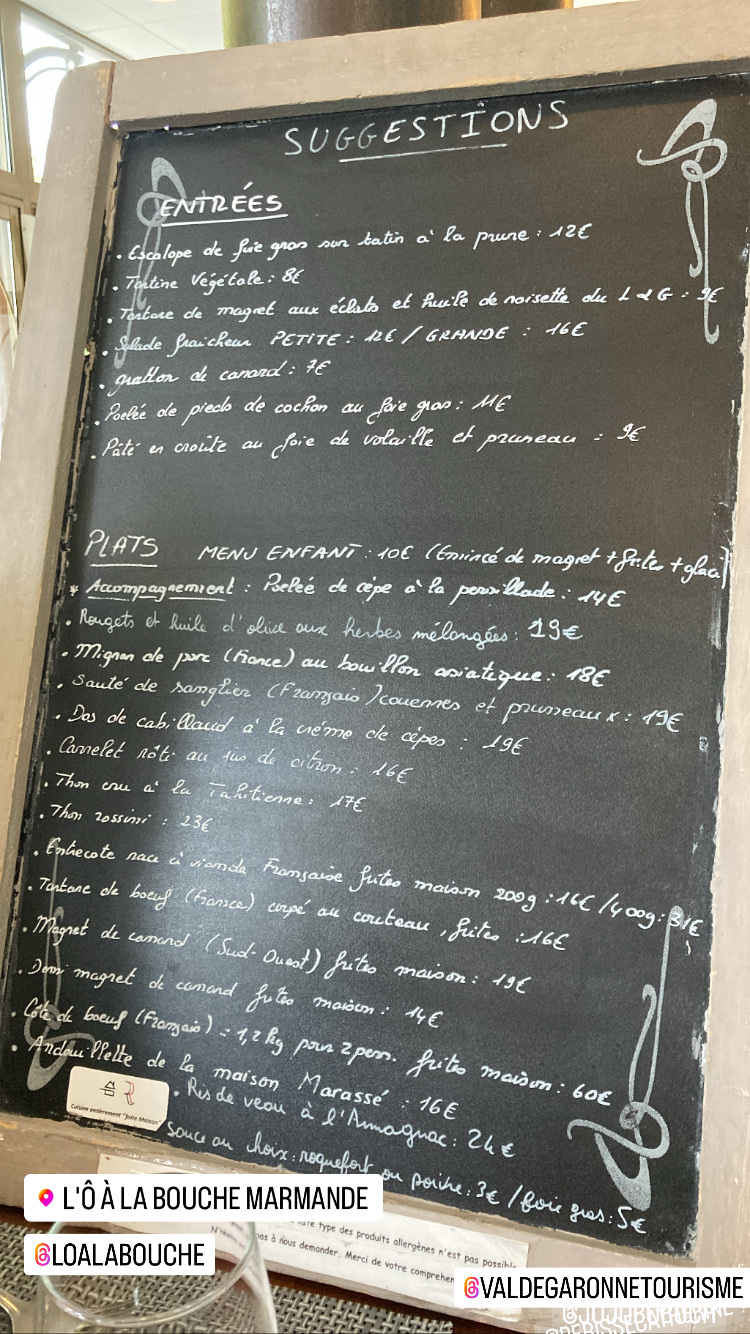 SUGGESTIONS
ENTRÉES
. Escalope de foie gras sur tatin à la prune : 12€
. Tartine Végétale : 8€
. Tartare de magret aux éclats et huile de noisette du L&G : 9€
. Salade fraicheur PETITE : 12€ / GRANDE : 16€
. gratton de canard : 7€
. Poelée de pieds de cochon au foie gras : 11€
. Pâté en croûte au foie de volaille et pruneau : 9€
PLATS MENU ENFANT : 10€ (Emincé de magret + frites + glace)
* Accompagnement : Poelée de cèpe à la persillade : 14€
. Rougets et huile d'olive aux herbes mélangées : 19€
. Mignon de porc (France) au bouillon asiatique : 18€
. Sauté de sanglier (Français) couennes et pruneaux : 19€
. Dos de cabillaud à la crème de cèpes : 19€
. Carrelet rôti au jus de citron : 16€
. Thon cru à la Tahitienne : 17€
. Thon rossini : 23€
. Entrecote race à viande Française frites maison 200g : 16€ / 400g : 31€
. Tartare de boeuf (France) coupé au couteau, frites : 16€
. Magret de canard (Sud-Ouest) frites maison : 19€
. Demi magret de canard frites maison : 14€
. Côte de boeuf (Français) = 1,2kg pour 2 pers. frites maison : 60€
. Andouillette de la maison Marassé : 16€
. Ris de veau à l'Armagnac : 24€
Sauce au choix : roquefort ou poivre : 3€ / foie gras : 5€
Cuisine entièrement "Faite Maison"
type des produits allergènes n'est pas possible
pas à nous demander. Merci de votre compréhen
L'Ô À LA BOUCHE MARMANDE
@LOALABOUCHE
@VALDEGARONNETOURISME